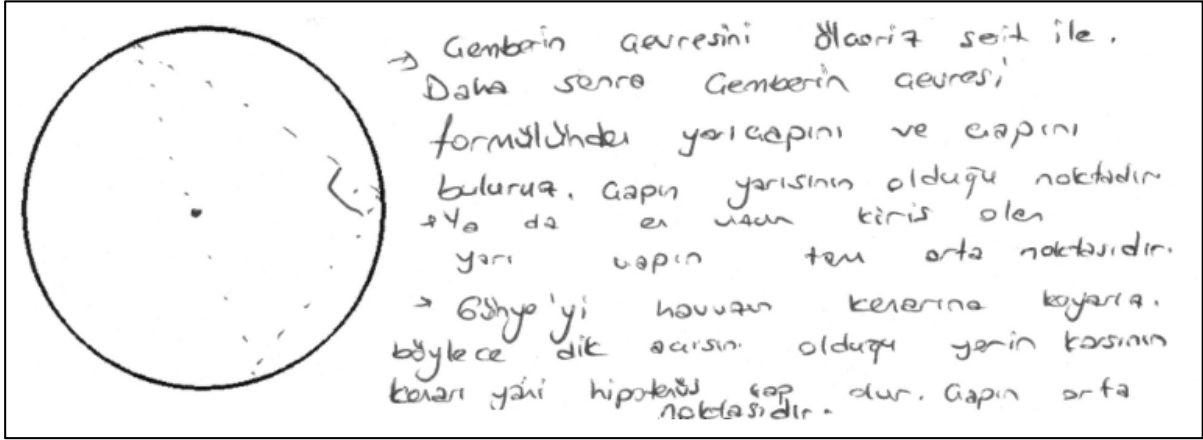 → Çemberin çevresini ölçeriz şerit ile.
Daha sonra Çemberin çevresi
formülünden yarıçapını ve çapını
buluruz. Çapın yarısının olduğu noktadır
* Ya da en uzun kiriş olan
yarı çapın tam orta noktasıdır.
→ Gönye'yi havuzun kenarına koyarız.
böylece dik açısını olduğu yerin karsının
kenarı yani hipotenüs çap olur. Çapın orta
noktasıdır.